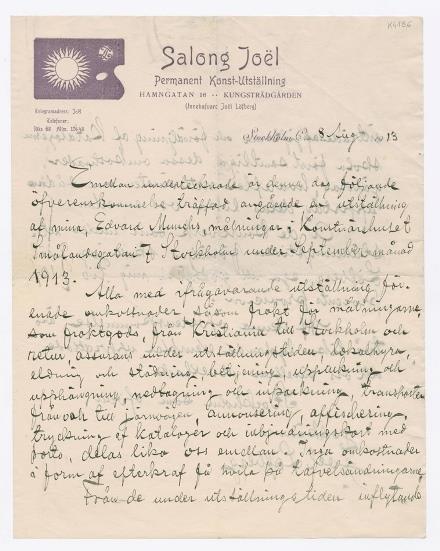 K4186
Salong Joël
Permanent Konst-Utställning
HAMNGATAN 16 ·· KUNGSTRÄDGÅRDEN
(Innehafvare Joël Löfberg)
Telegramadress: Joël
Telefoner:
Stockholm 8 Aug. 13
Emellan undertecknade är denna dag följande
öfverenskommelse träffad angående en utställning
af mina, Edvard Munchs, målningar i Konstnärshuset
Smålandsgatan 7 Stockholm under September månad
1913.
Alla med ifrågavarande utställning för-
enade omkostnader såsom frakt för målningarne,
som fraktgods, från Kristiania till Stockholm och
retur, assurans under utställningstiden lokalhyra,
eldning och städning, betjening, uppackning och
upphängning, nedtagning och inpackning, transporter
från och till järnvägen, annonsering, affichering,
tryckning af kataloger och inbjudningskort med
porto, delas lika oss emellan. Inga omkostnader
i form af efterkraf få hvila på tafvelsändningarne.
Från de under utställningstiden inflytande